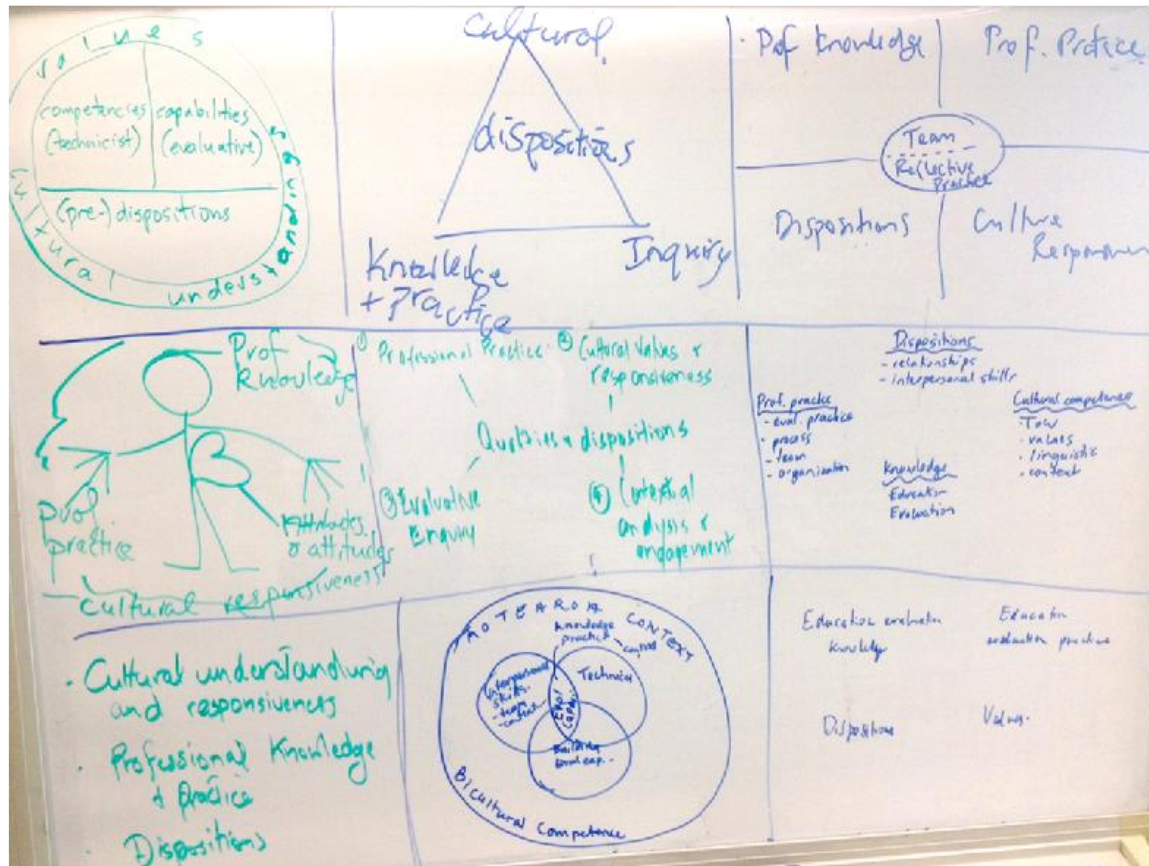 values
competencies
(technicist)
capabilities
(evaluative)
(pre-) dispositions
cultural understandings
Cultural
dispositions
Knowledge
+ practice
Inquiry
· Prof Knowledge
Prof. Practice
Team
Reflective
Practice
Dispositions
Culture
Prof
knowledge
Prof
practice
Attributes
& attitudes
cultural responsiveness
① Professional Practice
② Cultural Values +
responsiveness
Qualities + dispositions
③ Evaluative
Enquiry
④ Contextual
analysis +
engagement
Dispositions
- relationships
- interpersonal skills
Prof. practice
- eval. practice
- process
- team
- organisation
Knowledge
Education
Evaluation
Cultural competence
- values
- linguistic
- context
· Cultural understanding
and responsiveness
· Professional Knowledge
+ practice
· Dispositions
AOTEAROA CONTEXT
knowledge
practice
- context
interpersonal
skills
- team
- context
Technical
Eval
Capab.
Building
eval cap.
Bicultural Competence
Education evaluation
knowledge
Education
evaluation practice
Dispositions
Values